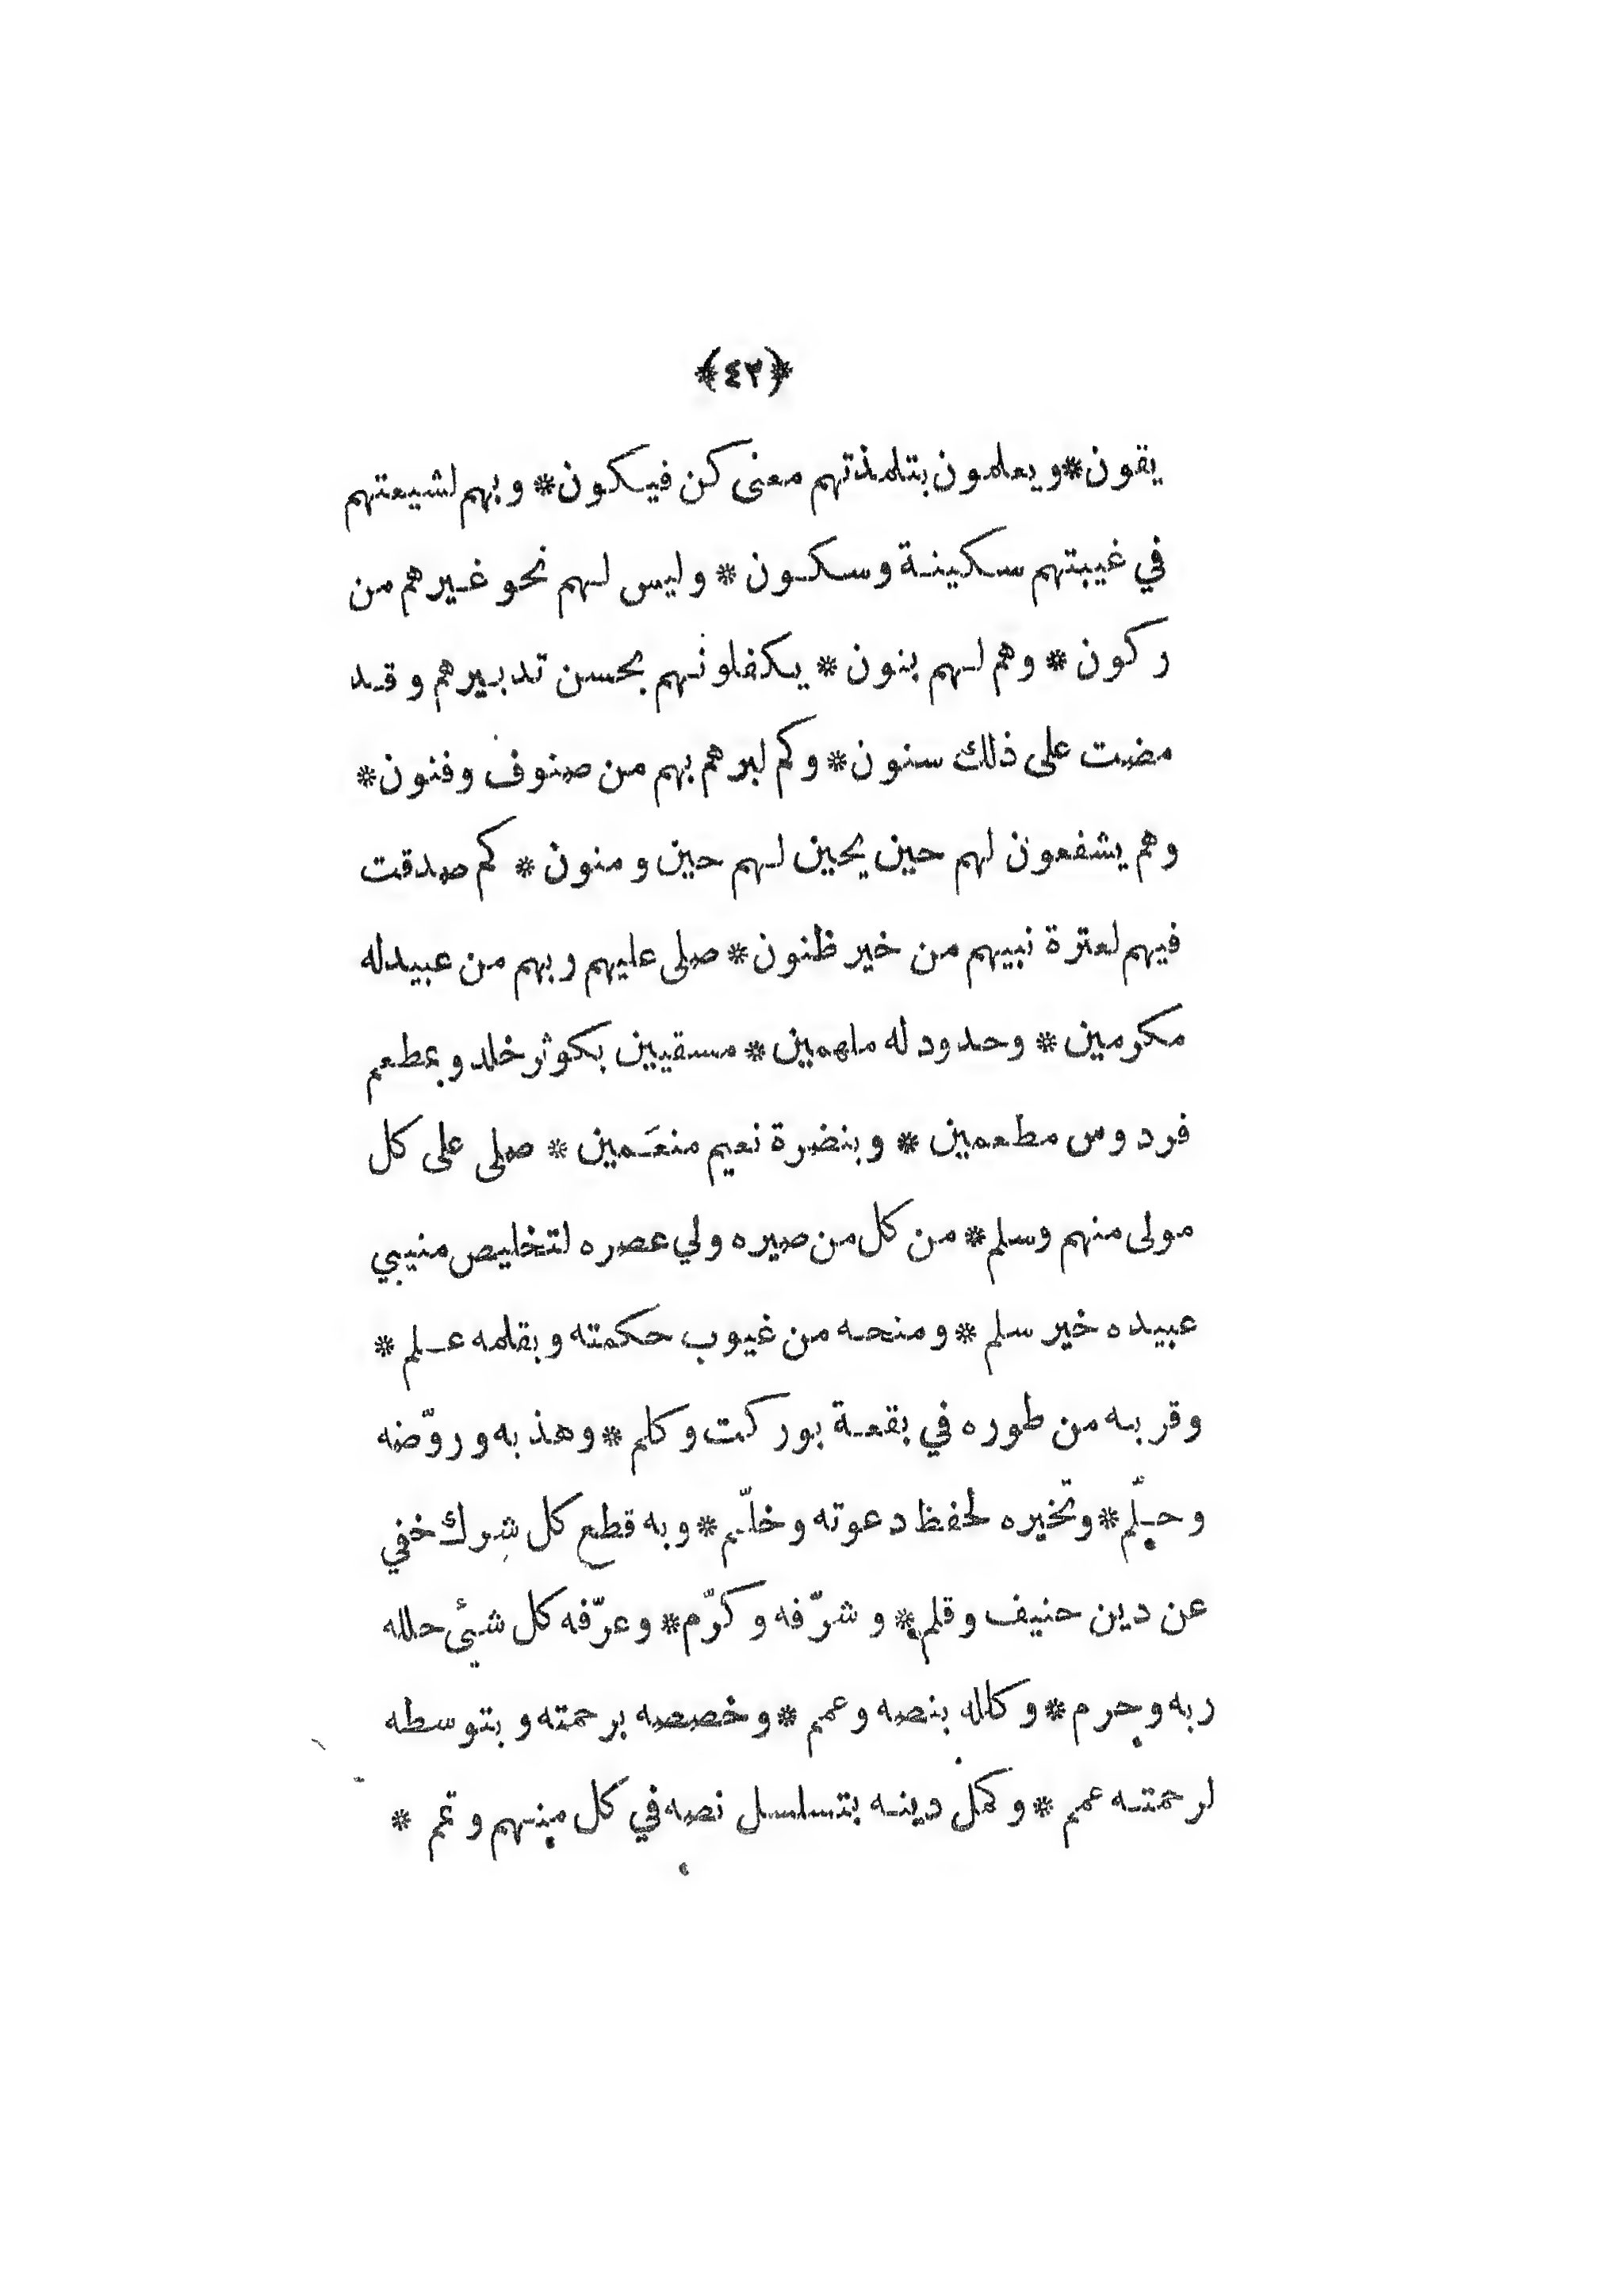 ﴿*٤٢*﴾
يقون*ويعلمون بتلمذتهم معنى كن فيكون* وبهم لشيعتهم
في غيبتهم سكينة وسكون* وليس لهم نحو غيرهم من
ركون* وهم لهم بنون* يكفلونهم بحسن تدبيرهم وقد
مضت على ذلك سنون* وكم لبرهم بهم من صنوف وفنون*
وهم يشفعون لهم حين يحين لهم حين ومنون* كم صدقت
فيهم لعترة نبيهم من خير ظنون* صلى عليهم وبهم من عبيد له
مكرمين* وحدود له ملهمين* مسقيين بكوثر خلد وبمطعم
فردوس مطعمين* وبنضرة نعيم منعَمين* صلى على كل
مولى منهم وسلم* من كل من صيره ولي عصره لتخليص منيبي
عبيده خير سلم* ومنحه من غيوب حكمته وبقلمه علم*
وقربه من طوره في بقعة بوركت وكلم* وهذبه وروّضه
وحلّم* وتخيره لحفظ دعوته وخلّم* وبه قطع كل شرك خفي
عن دين حنيف وقلم* وشرّفه وكرّم* وعرّفه كل شيئ حلله
ربه وحرم* وكلله بنصه وعمم* وخصصه برحمته وبتوسطه
لرحمته عمم* وكمل دينه بتسلسل نصه في كل منهم وتمم*